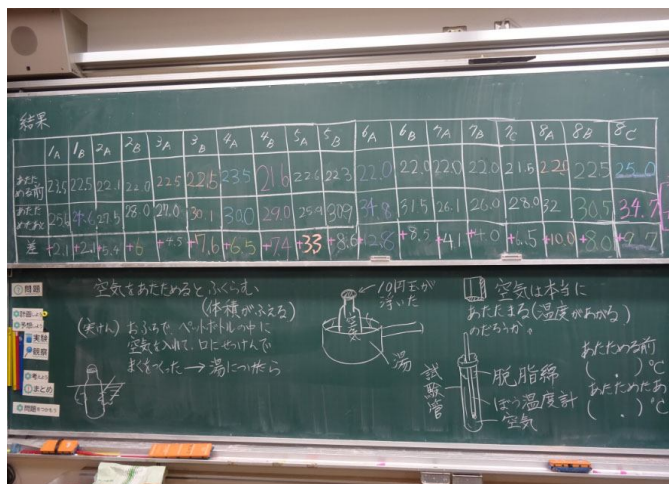 結果
1A 1B 2A 2B 3A 3B 4A 4B 5A 5B 6A 6B 7A 7B 7C 8A 8B 8C
あたためる前 23.5 22.5 22.1 22.0 22.5 22.5 23.5 21.6 22.6 22.3 22.0 22.0 22.0 22.0 21.5 22.5 25.0
あたためたあと 25.6 24.6 27.5 28.0 27.0 30.1 30.0 29.0 25.9 30.9 34.8 31.5 26.1 26.0 28.0 32 30.5 34.7
差 +2.1 +2.1 +5.4 +6 +4.5 +7.6 +6.5 +7.4 +3.3 +8.6 +12.8 +8.5 +4.1 +4.0 +6.5 +10.0 +8.0 +9.7
空気をあたためるとふくらむ
(体積がふえる)
(実けん) おふろで、ペットボトルの中に
空気を入れて、口にせっけんで
まくをつくった→湯につけたら
10円玉が
浮いた
空気
湯
空気は本当に
あたたまる(温度があがる)
のだろうか。
試験管
脱脂綿
ぼう温度計
空気
あたためる前
( . )℃
あたためたあ
( . )℃
?問題
計画しよう
予想しよう
実験
観察
考えよう
!まとめ
問題をつかもう